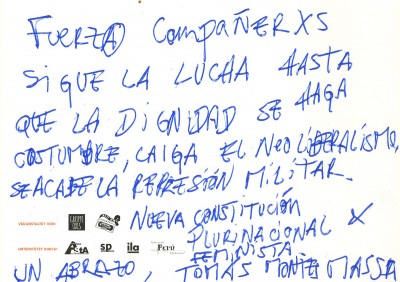 FUERZA COMPAÑERXS
SIGUE LA LUCHA HASTA
QUE LA DIGNIDAD SE HAGA
COSTUMBRE, CAIGA EL NEOLIBERALISMO,
SE ACABE LA REPRESIÓN MILITAR.
NUEVA CONSTITUCIÓN
PLURINACIONAL X
FEMINISTA
VERANSTALTET VON:
UNTERSTÜTZT DURCH:
AStA sp ila Perú
UN ABRAZO, TOMAS MONTE MASSA